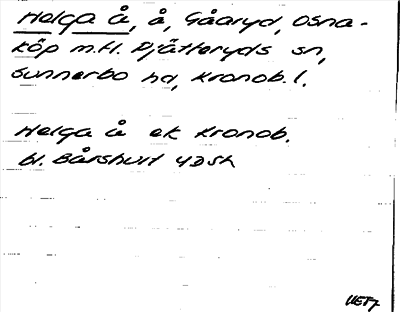 Helga å, å, Gåaryd, Osna-
köp m.fl. Pjätteryds sn,
Sunnerbo hd, Kronob. l.
Helga å ek Kronob.
bl. Bårshult 4D5h